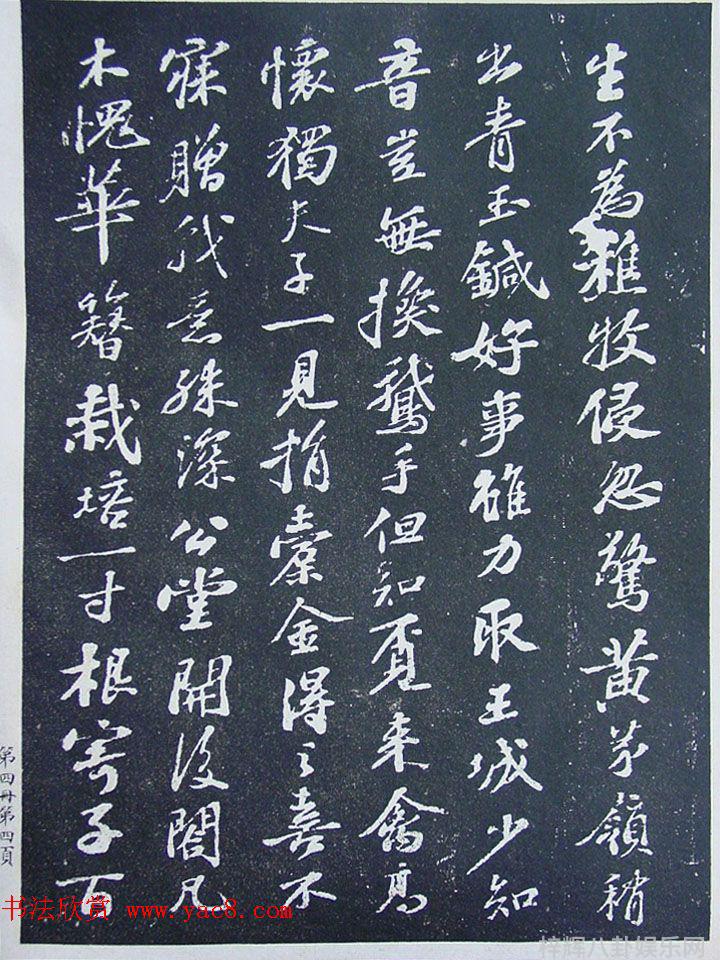 生不為樵牧侵忽驚黃茅嶺稍
出青玉鍼好事雖力取王城少知
音豈無換鵝手但知覓來禽高
懷獨夫子一見捐橐金得之喜不
寐贈我意殊深公堂開後閤凡
木愧華簪栽培一寸根寄子百
第四冊第四頁
书法欣赏 www.yac8.com
梓辉八卦娱乐网